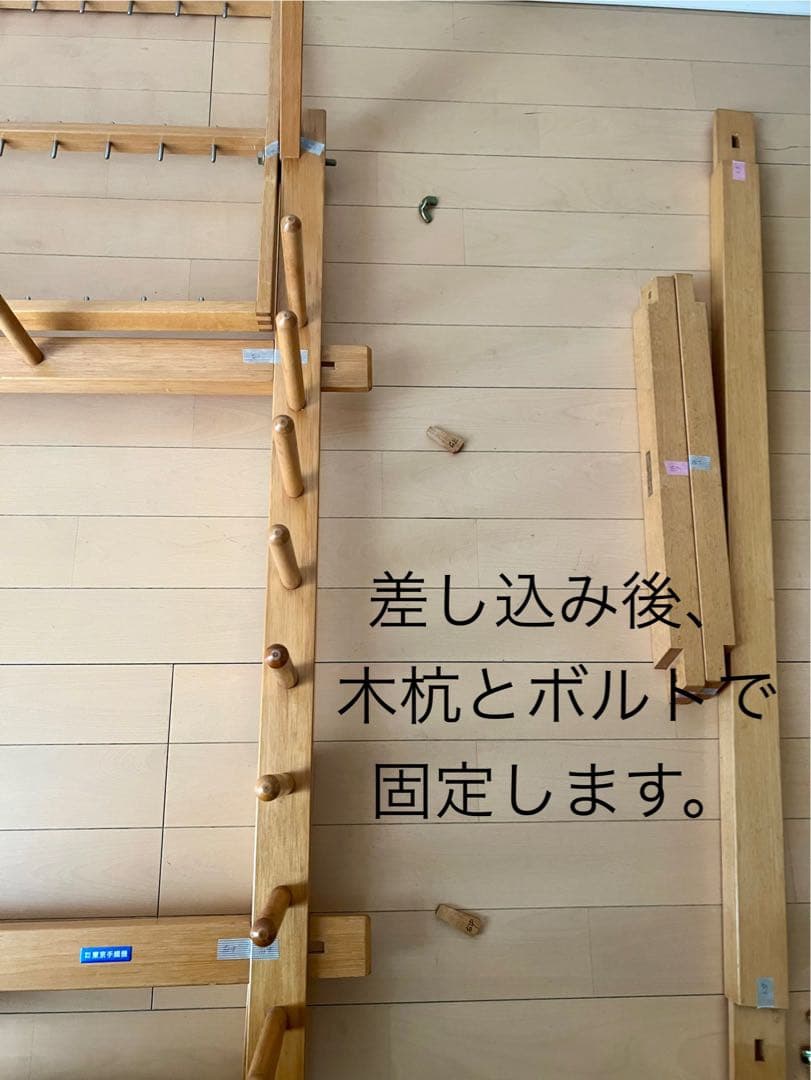 差し込み後、
木杭とボルトで
固定します。
東京手織機